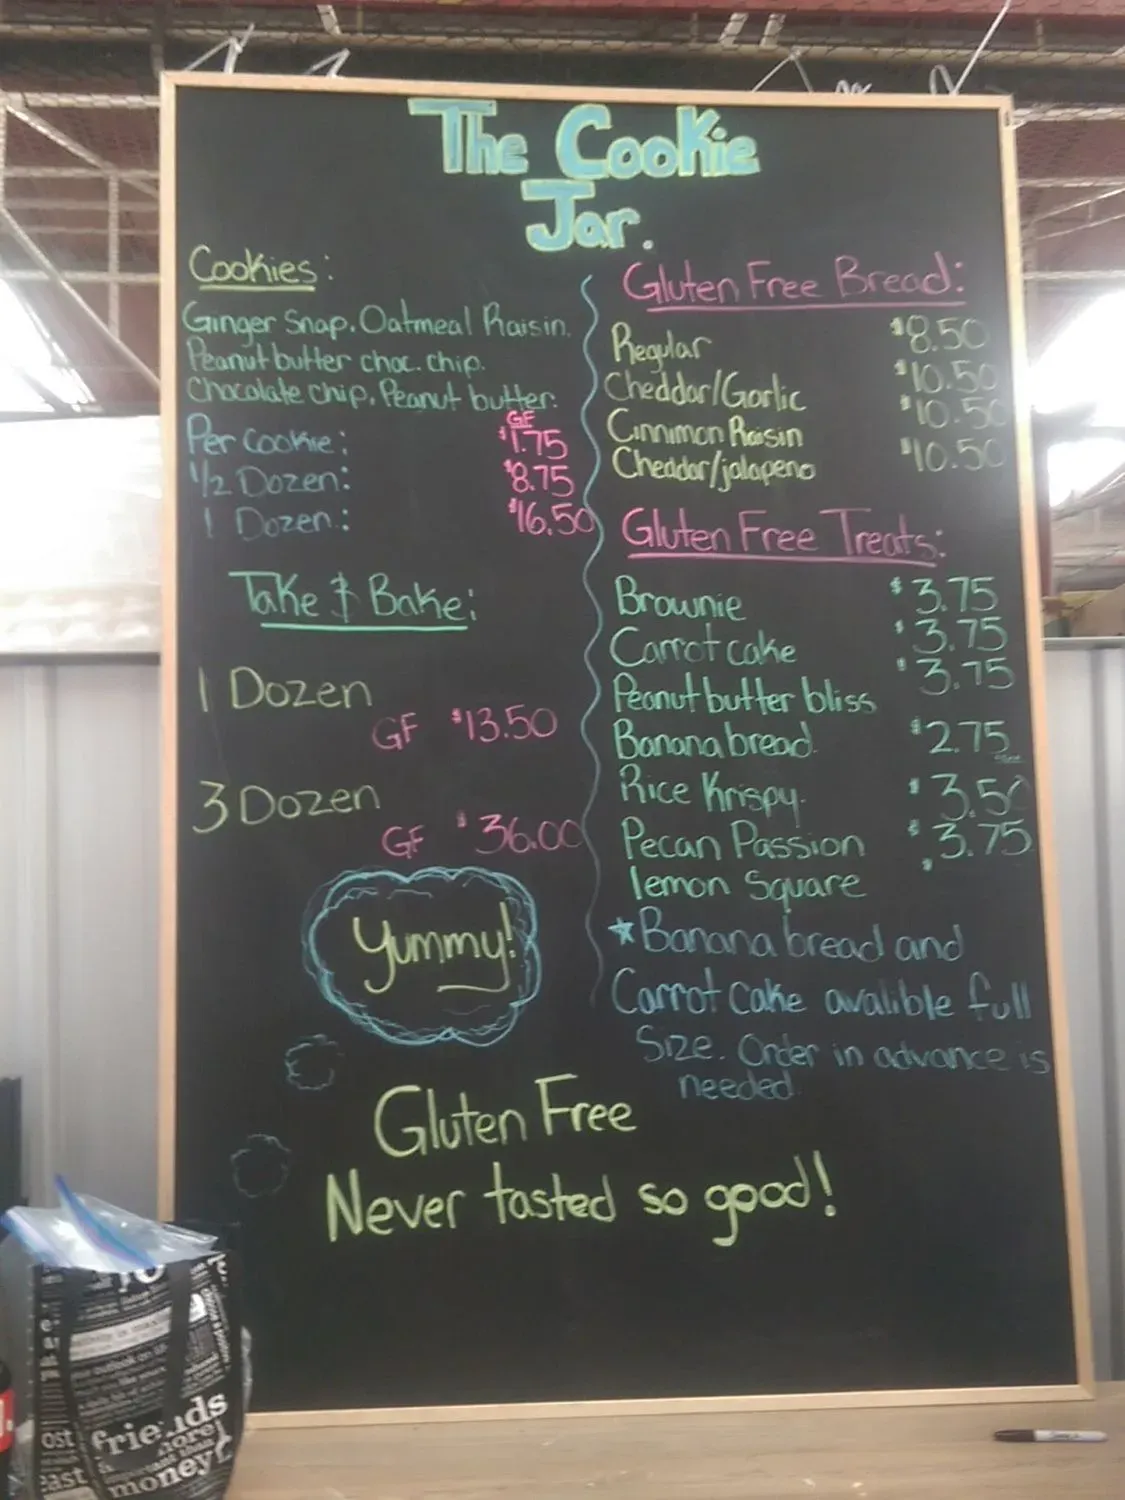 The Cookie
Jar.
Cookies:
Ginger Snap. Oatmeal Raisin.
Peanut butter choc. chip.
Chocolate chip. Peanut butter.
GF
Per Cookie: $1.75
1/2 Dozen: $8.75
1 Dozen: $16.50
Take & Bake:
1 Dozen
GF $13.50
3 Dozen
GF $36.00
Yummy!
Gluten Free Bread:
Regular $8.50
Cheddar/Garlic $10.50
Cinnimon Raisin $10.50
Cheddar/jalapeno $10.50
Gluten Free Treats:
Brownie $3.75
Carrot cake $3.75
Peanut butter bliss $3.75
Banana bread $2.75
Rice Krispy. $3.50
Pecan Passion $3.75
lemon Square
*Banana bread and
Carrot Cake avalible full
Size. Order in advance is
needed.
Gluten Free
Never tasted so good!
friends
more
important than
money